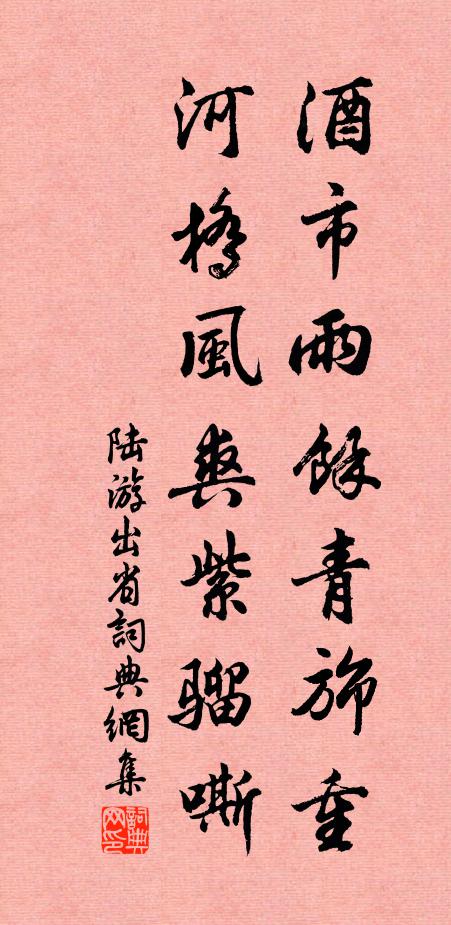 酒市雨餘青旆重
河橋風爽紫骝嘶
陆游出省詞典網集
詞典网印